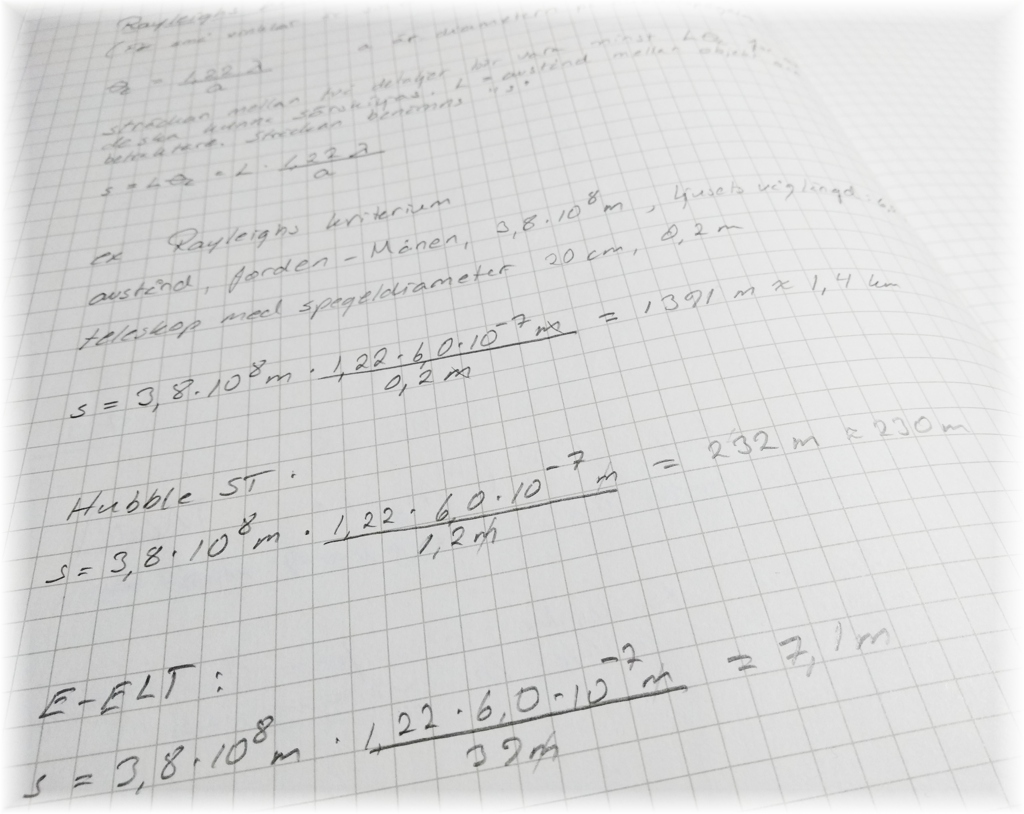 Rayleighs
a är diametern
θ₂ = 1,22 λ / a
sträckan mellan två detaljer bör vara minst Lθ₂
de ska kunna särskiljas. L = avstånd mellan objekt
betraktare. Sträckan benämns "s".
s = Lθ₂ = L · 1,22 λ / a
ex Rayleighs kriterium
avstånd, Jorden - Månen, 3,8·10⁸ m, ljusets våglängd
teleskop med spegeldiameter 20 cm, 0,2 m
s = 3,8·10⁸ m · 1,22·6,0·10⁻⁷ m / 0,2 m = 1391 m ≈ 1,4 km
Hubble ST:
s = 3,8·10⁸ m · 1,22·6,0·10⁻⁷ m / 1,2 m = 232 m ≈ 230 m
E-ELT:
s = 3,8·10⁸ m · 1,22·6,0·10⁻⁷ m / 39 m = 7,1 m